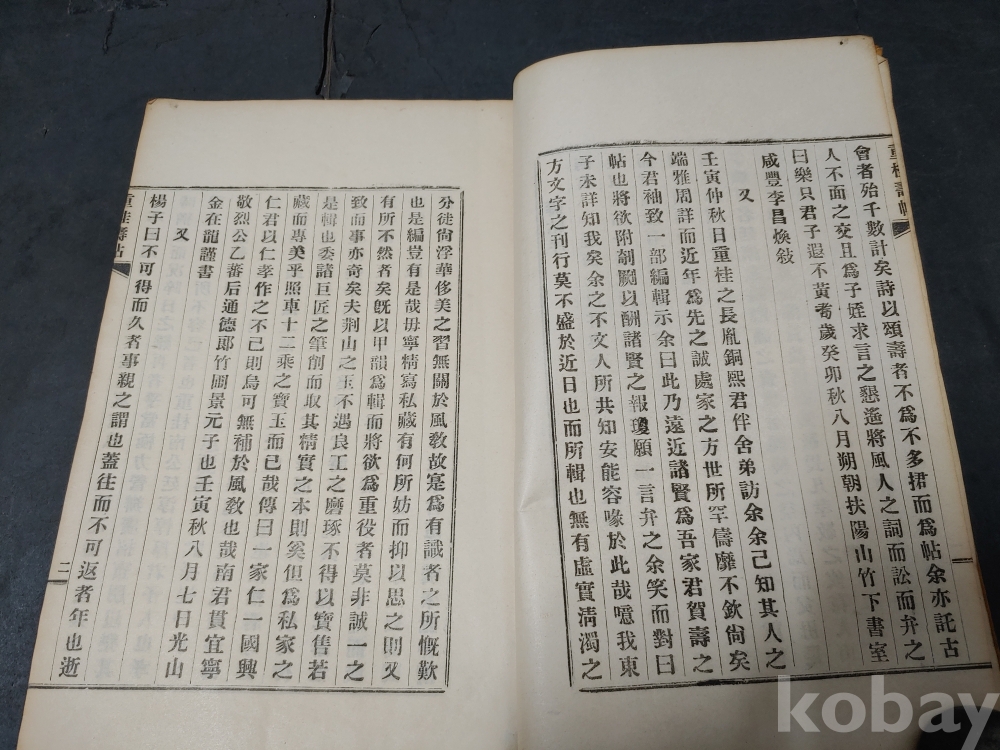 重桂壽帖
會者殆千數計矣詩以頌壽者不爲不多捃而爲帖余亦託古
人不面之交且爲子姪求言之懇遙將風人之詞而訟而弁之
曰樂只君子遐不黃耉歲癸卯秋八月朔朝扶陽山竹下書室
咸豐李昌煥敍
又
壬寅仲秋日重桂之長胤銅熙君伴舍弟訪余余已知其人之
端雅周詳而近年爲先之誠處家之方世所罕儔靡不欽尙矣
今君袖致一部編輯示余曰此乃遠近諸賢爲吾家君賀壽之
帖也將欲附剞劂以酬諸賢之報瓊願一言弁之余笑而對曰
子未詳知我矣余之不文人所共知安能容喙於此哉噫我東
方文字之刊行莫不盛於近日也而所輯也無有虛實淸濁之
分徒尙浮華侈美之習無關於風敎故寔爲有識者之所慨歎
也是編豈有是哉毋寧精寫私藏有何所妨而抑以思之則又
有所不然者矣旣以甲韻爲輯而將欲爲重役者莫非誠一之
致而事亦奇矣夫荆山之玉不遇良工之磨琢不得以寶售若
是輯也委諸巨匠之筆削而取其精實之本則奚但爲私家之
藏而專美乎照車十二乘之寶玉而已哉傳曰一家仁一國興
仁君以仁孝作之不已則烏可無補於風敎也哉南君貫宜寧
敬烈公乙蕃后通德郞竹圃景元子也壬寅秋八月七日光山
金在龍謹書
又
楊子曰不可得而久者事親之謂也蓋往而不可返者年也逝
重桂壽帖
二
kobay